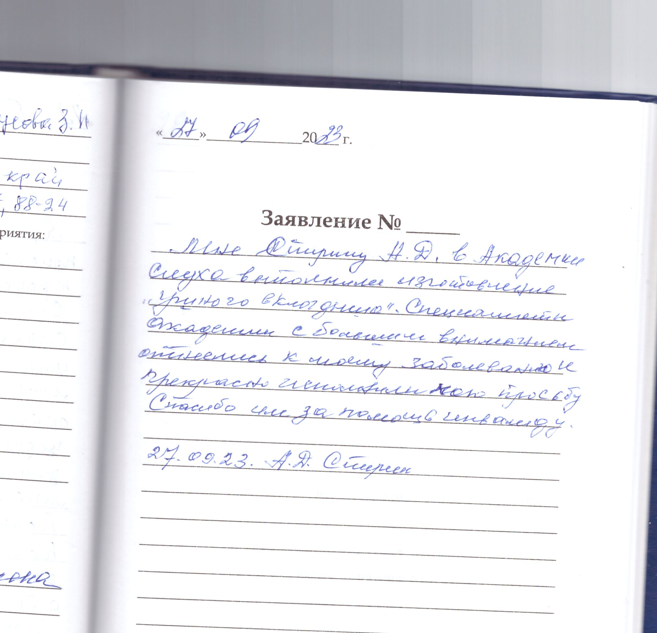 нова З.И
край
, 88-24
риятия:
«27» 09 2023 г.
Заявление №
Мне Стирину А.Д. в Академии
Слуха выполнили изготовление
"Ушного вкладыша". Специалисты
Академии с большим вниманием
отнеслись к моему заболеванию и
прекрасно исполнили мою просьбу
Спасибо им за помощь инвалиду.
27.09.23. А.Д. Стирин